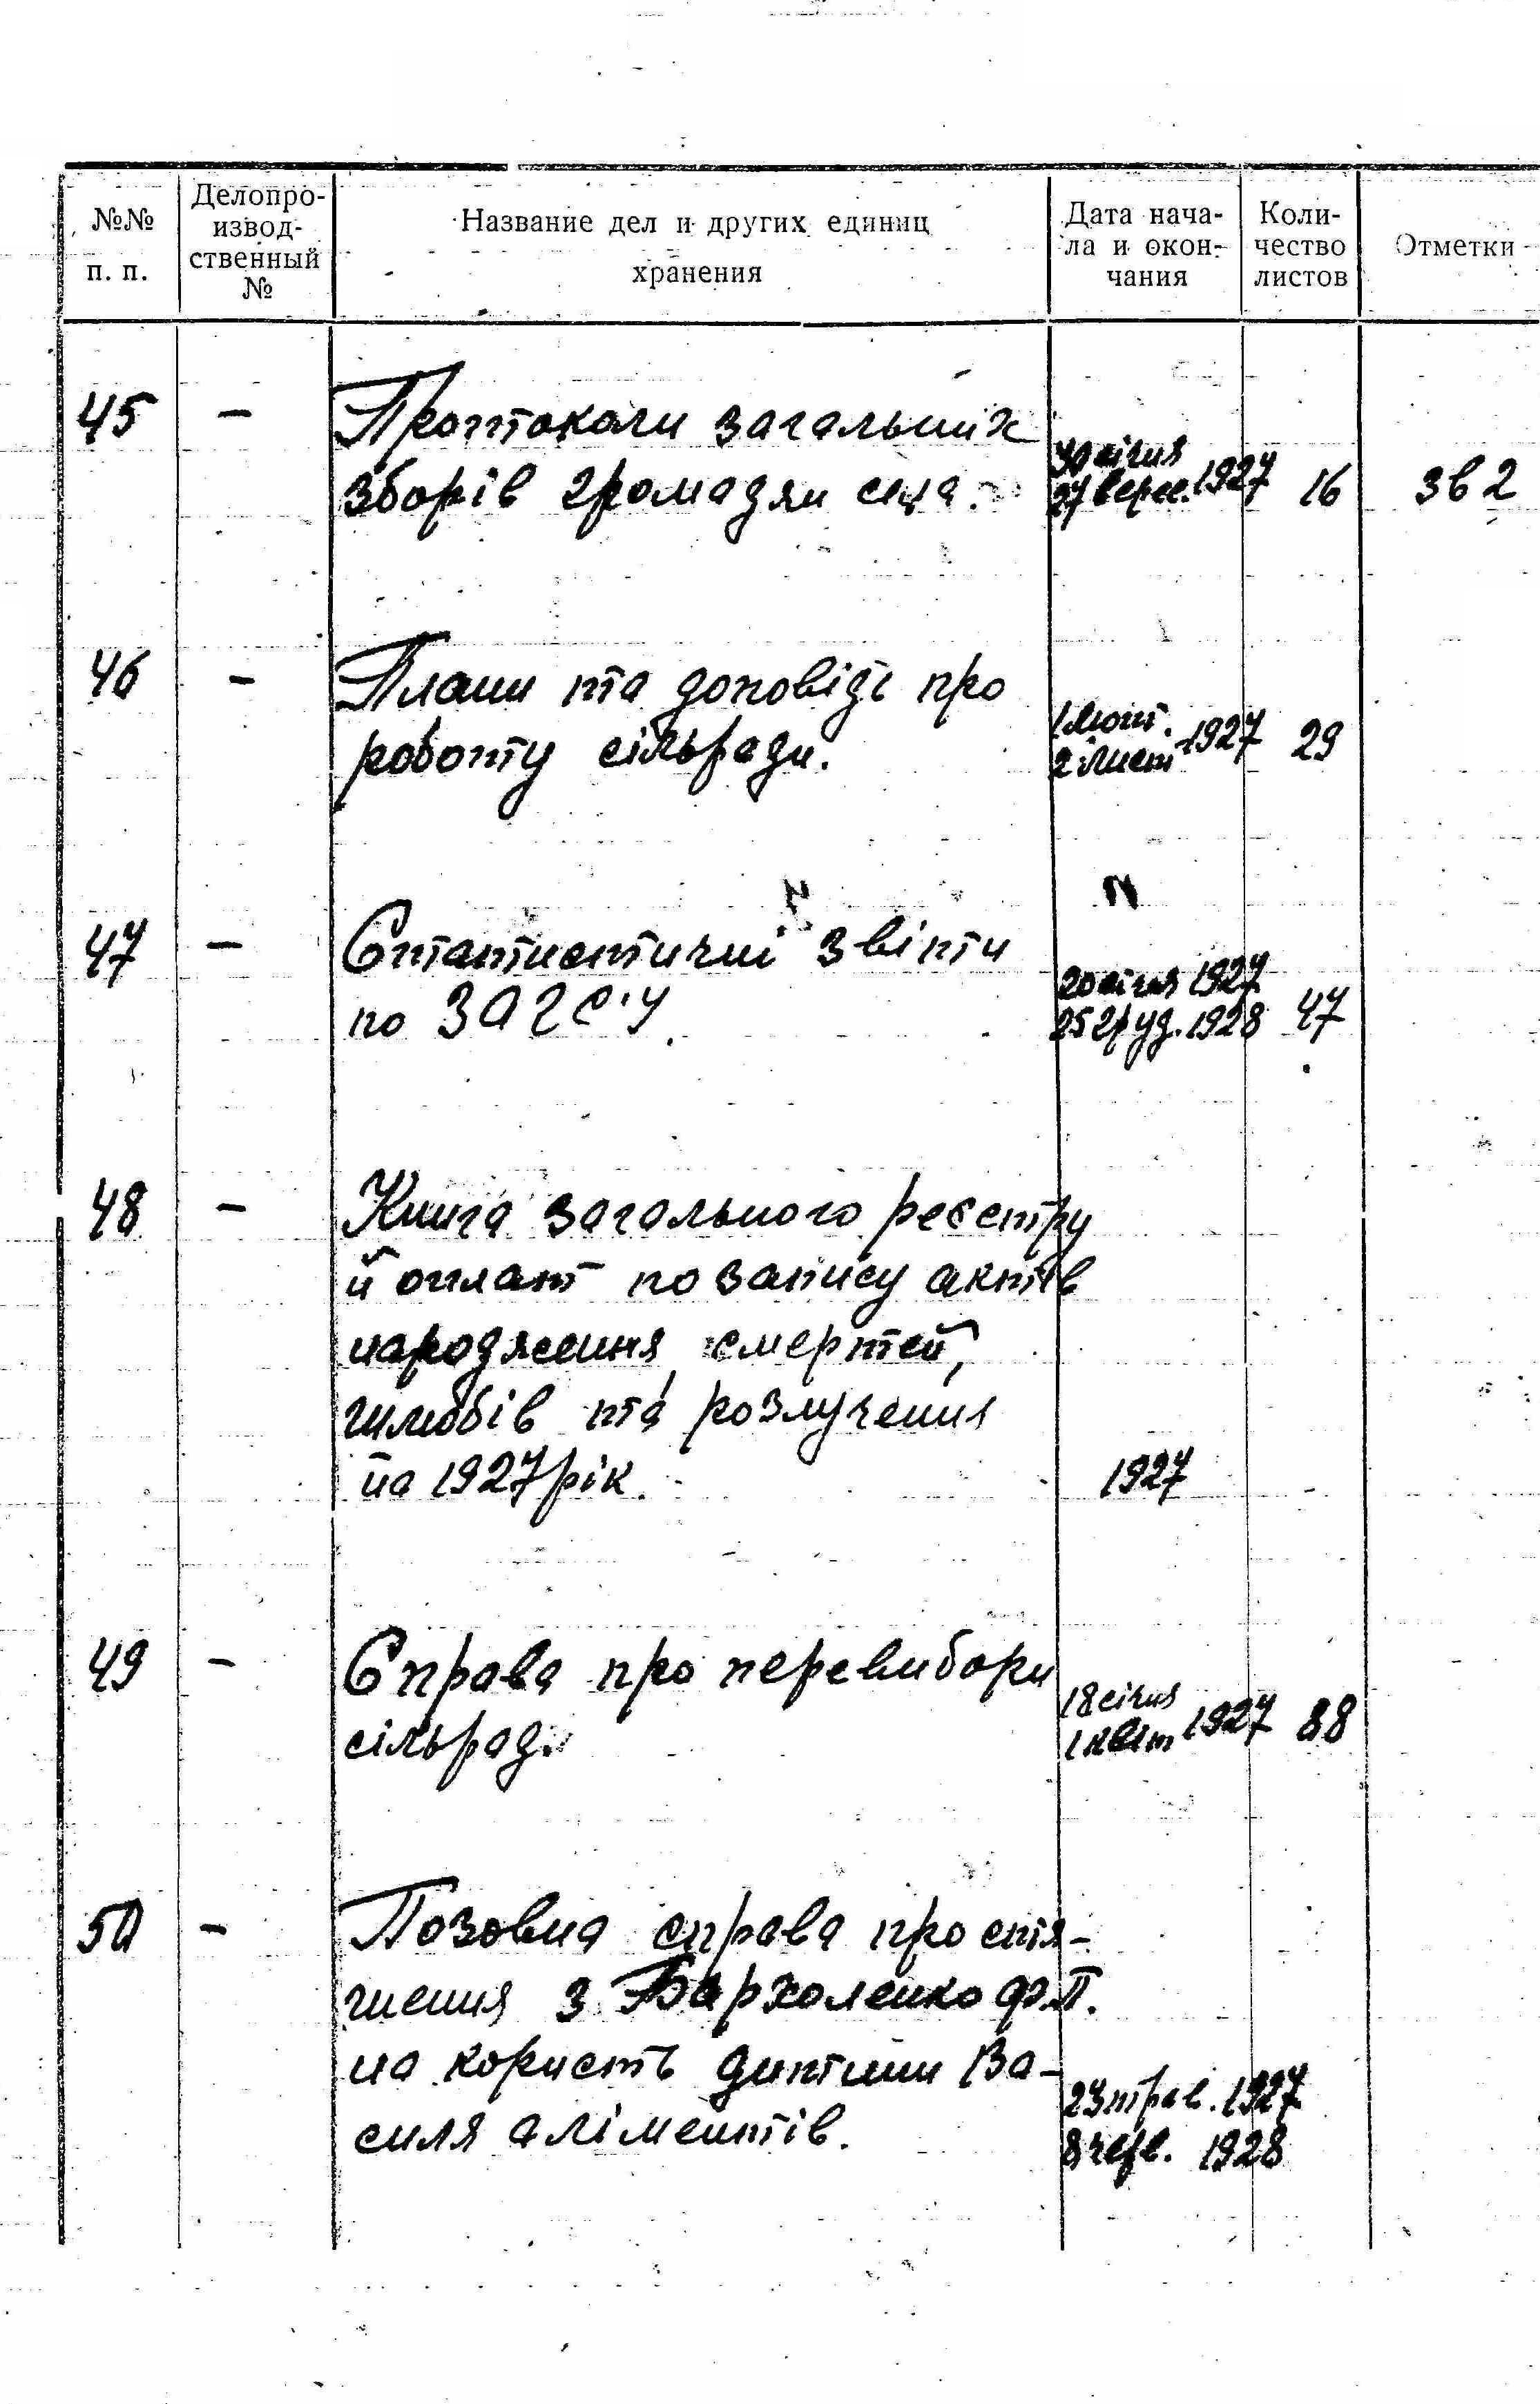 №№ п. п.
Делопро-
извод-
ственный
№
Название дел и других единиц
хранения
Дата нача-
ла и окон-
чания
Коли-
чество
листов
Отметки
45 — Протоколи загальних
зборів громадян села. 30 січня 27 верес. 1927 16 зв 2
46 — Плани та доповіді про
роботу сільради. 1 лют. 2 лист 1927 29
47 — Статистичні звіти
по ЗАГС'у. 20 січня 1927 25 груд. 1928 47
48 — Книга загального реєстру
й оплат по запису актів
народження, смертей,
шлюбів та розлучення
на 1927 рік. 1927
49 — Справа про перевибори
сільради 18 січня 1 квіт 1927 88
50 — Позовна справа про стя-
гнення з Бархоленко Ф.П.
на користь дитини Ва-
силя аліментів. 23 трав. 1927
8 черв. 1928